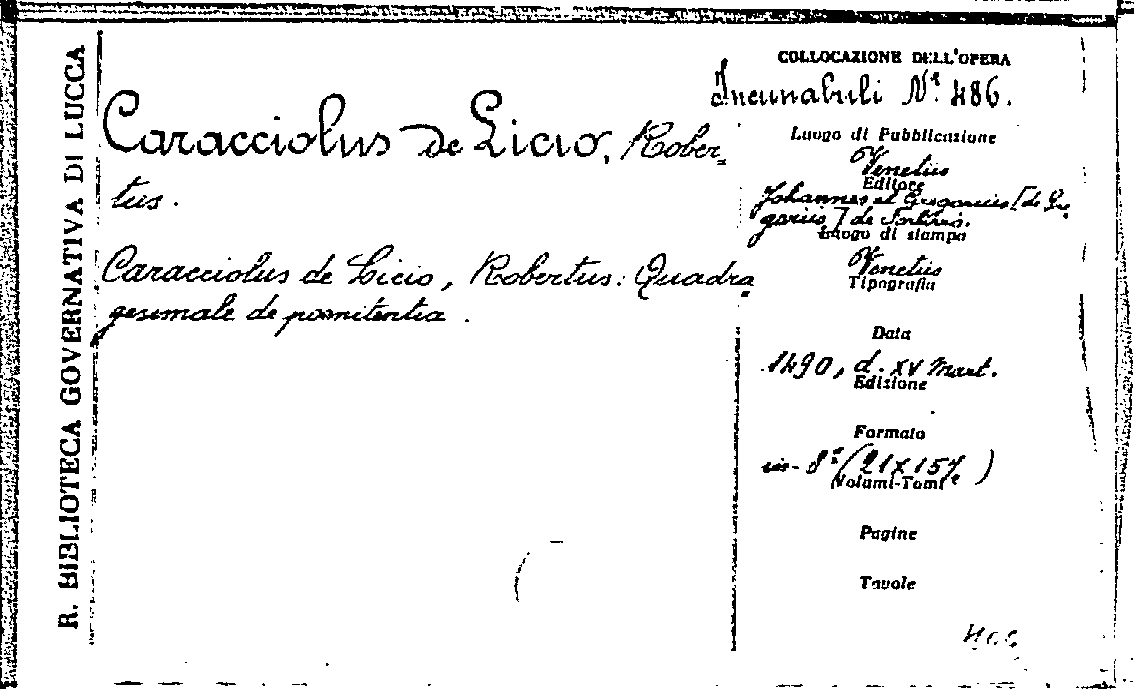 R. BIBLIOTECA GOVERNATIVA DI LUCCA
Caracciolus de Licio, Rober-
tus.
Caracciolus de Licio, Robertus: Quadra-
gesimale de poenitentia.
COLLOCAZIONE DELL'OPERA
Incunabuli N.° 486.
Luogo di Pubblicazione
Venetiis
Editore
Johannes et Gregorius [de Gre-
goriis] de Forlivio.
Luogo di stampa
Venetiis
Tipografia
Data
1490, d. XV Mart.
Edizione
Formato
in-8° (21 X 15
Volumi-Tomi
Pagine
Tavole